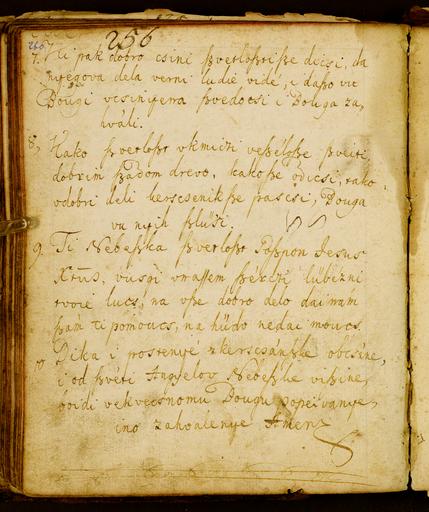 256
7. Ki pak dobro csini ßvetloßt iße dicsi, da
nyegova dela verni ludie vide, i daßo vu
Bougi vcsinyena ßvedocsi i Bouga za,
hváli.
8, Kako ßvetloßt vkmiczi veßélyße ßveiti,
dobrim ßádom drevo, kakoße odicsi, tako
vdobri deli kerscsenikße prascsi, Bouga
vu nyih ßlusi.
9. Ti Nebeßka ßvetloßt Goßpon Jesus
Xtus, vusgi vnaßem ßerczi lübézni
tvoie lucs, na vße dobro delo dai nam
ßám ti pomoucs, na húdo nedai moucs.
10 Dika i postenyé zkerscsánßke obcsine,
i od ßvéti Angyelov Nebeßke vißine,
boidi vekvecsnomu Bougu popeivanye,
ino zahvalenye Amen